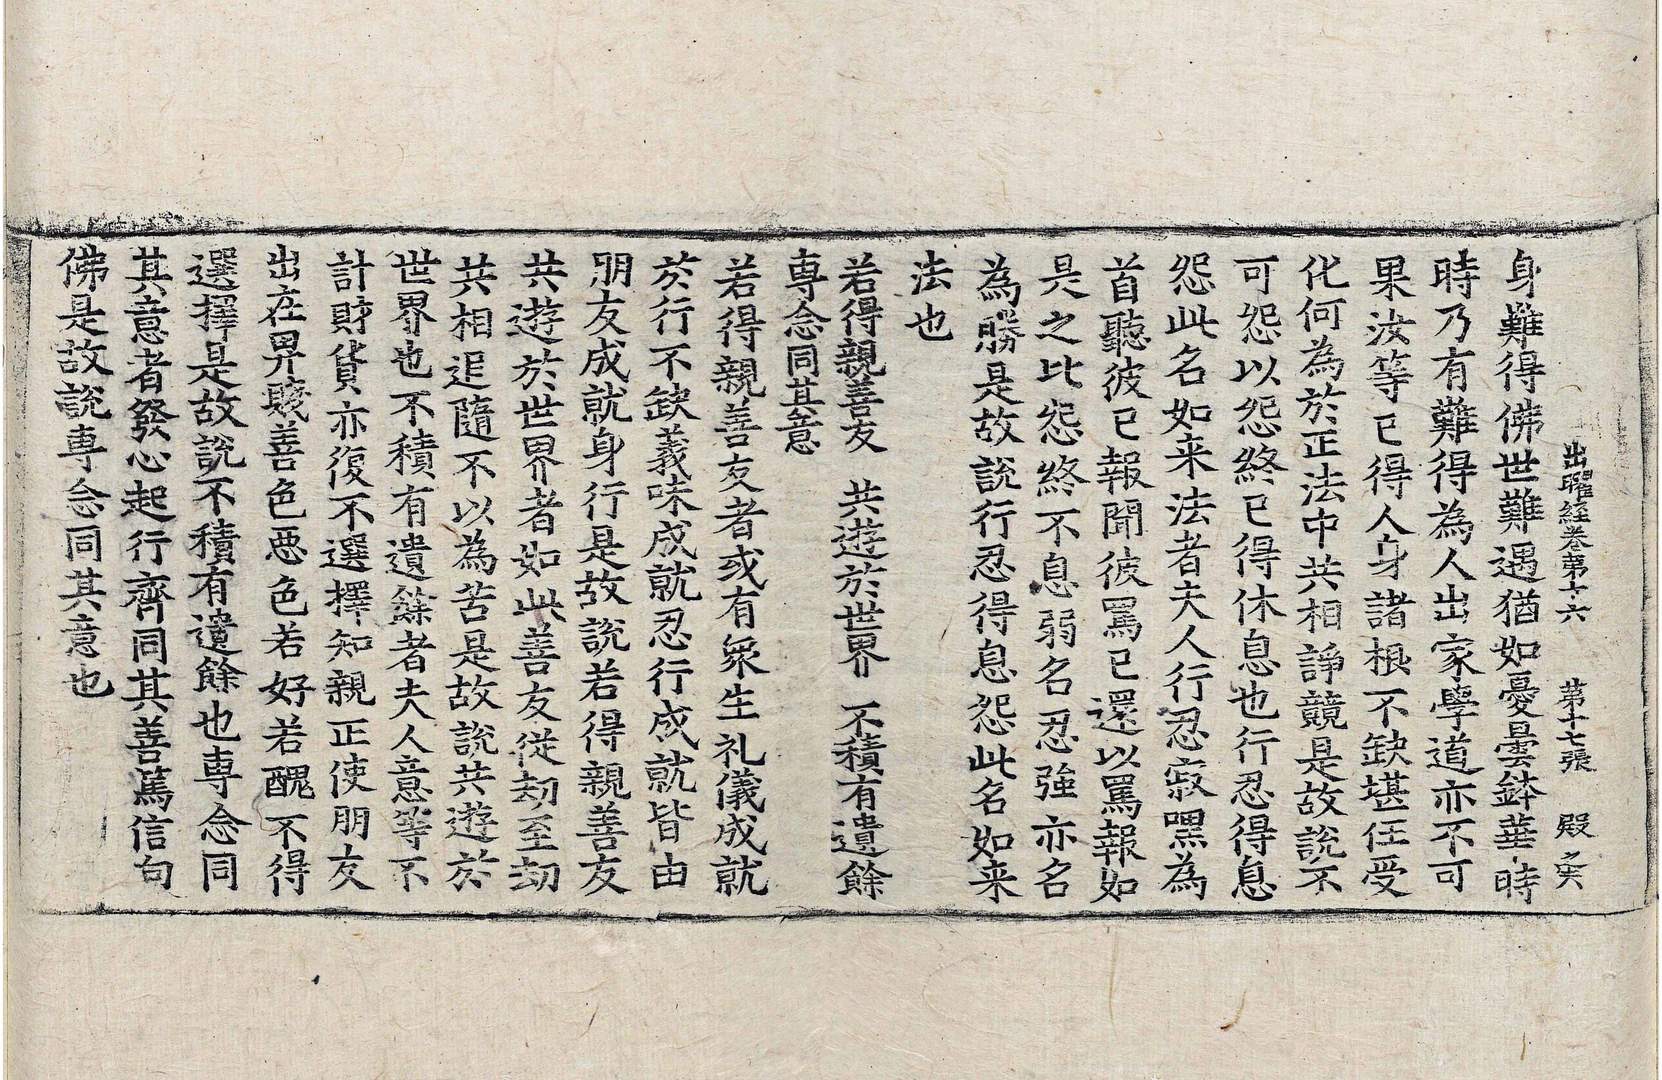 出曜経卷第十六 第十七張 殿
身難得佛世難遇猶如憂曇鉢華時
時乃有難得為人出家學道亦不可
果汝等已得人身諸根不缺堪任受
化何為於正法中共相諍競是故說不
可怨以怨終已得休息也行忍得息
怨此名如来法者夫人行忍寂嘿為
首聽彼已報聞彼罵已還以罵報如
是之比怨終不息弱名忍強亦名
為勝是故說行忍得息怨此名如来
法也
若得親善友 共遊於世界 不積有遺餘
專念同其意
若得親善友者或有衆生礼儀成就
於行不缺義味成就忍行成就皆由
朋友成就身行是故說若得親善友
共遊於世界者如此善友從劫至劫
共相追隨不以為苦是故說共遊於
世界也不積有遺餘者夫人意等不
計財貨亦復不選擇知親正使朋友
出在界賤善色惡色若好若醜不得
選擇是故說不積有遺餘也專念同
其意者發心起行齊同其善篤信句
佛是故說專念同其意也